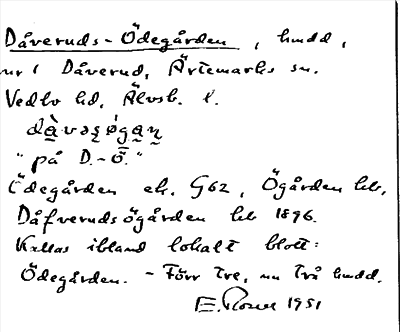 Dåveruds-Ödegården, hmdd,
nr 1 Dåverud, Ärtemarks sn.
Vedbo hd, Älvsb. l.
dàvəs̥ø̀gan̥
"på D.-ö."
Ödegården ek. G62, Ögården hb,
Dåfverudsögården hb 1896.
Kallas ibland lokalt blott:
Ödegården. - Förr tre, nu två hmdd.
E. 1951